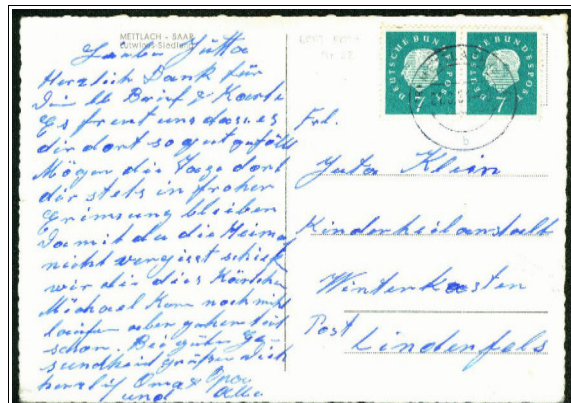 METTLACH - SAAR
Lutwinus-Siedlung
Liebe Jutta
Herzlich Dank für
Brief & Karte
Es freut uns dass es
dir dort so gut gefällt
Mögen die Tage dort
dir stets in froher
Erinnrung bleiben
Damit du die Heimat
nicht vergisst schick
wir dir dies Kärtchen
Michael kann noch nicht
laufen aber gehen tut
schon. Bei guter Ge-
sundheit grüßen dich
herzlich Oma & Opa
und Alle
DEUTSCHE BUNDESPOST
7
DEUTSCHE BUNDESPOST
7
b
Frl.
Juta Klein
Kinderheilanstalt
Winterkasten
Post Lindenfels